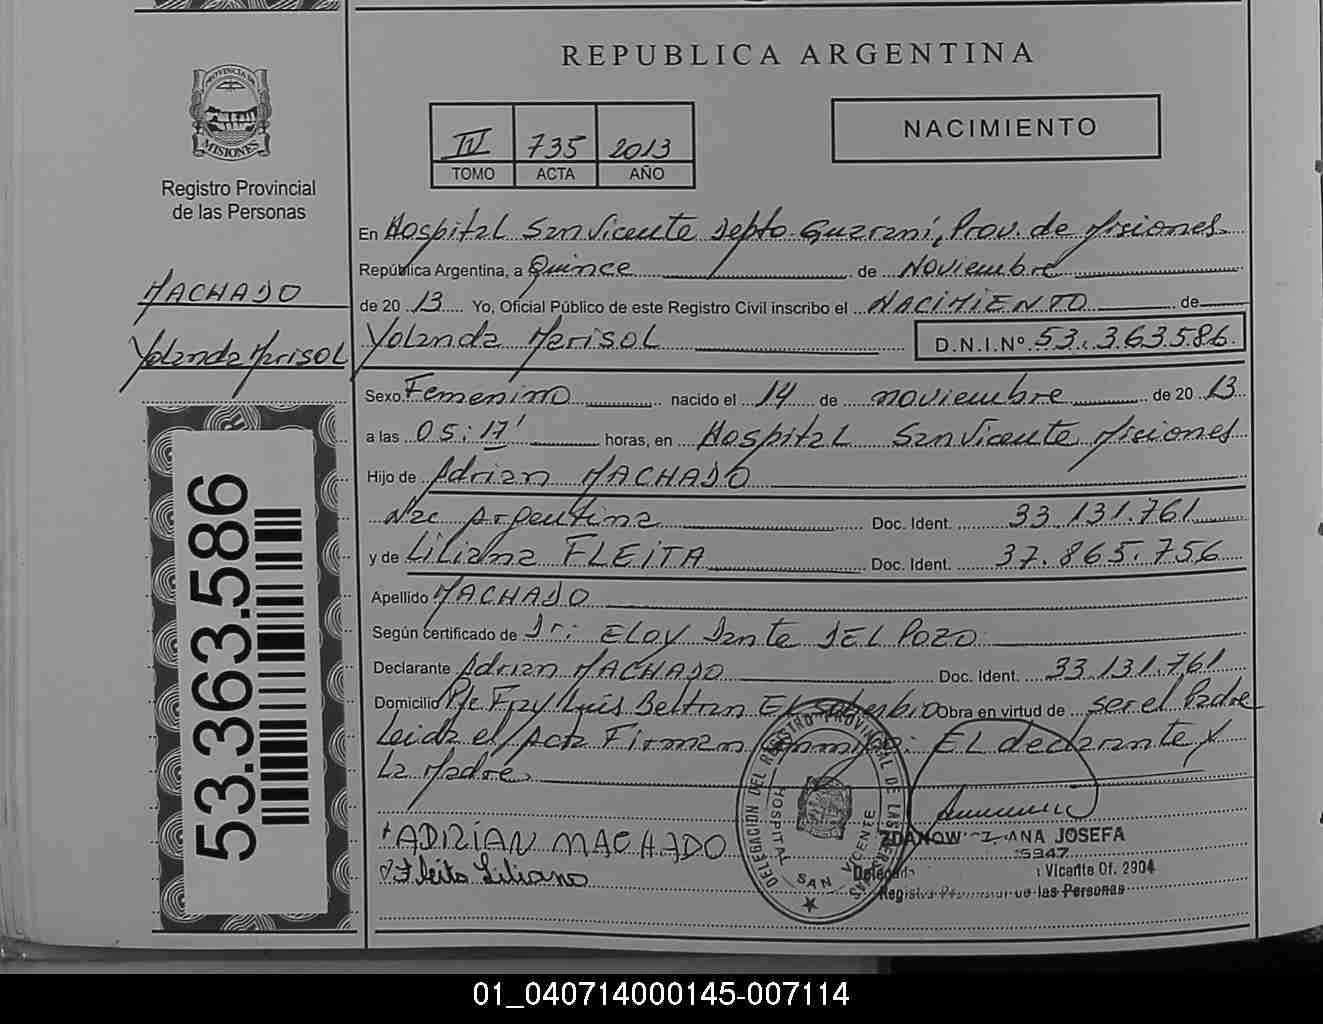 REPUBLICA ARGENTINA
PROVINCIA DE
MISIONES
Registro Provincial
de las Personas
IV 735 2013
TOMO ACTA AÑO
NACIMIENTO
En Hospital San Vicente Depto. Guarani, Prov. de Misiones
República Argentina, a Quince de Noviembre
de 2013 Yo, Oficial Público de este Registro Civil inscribo el NACIMIENTO de
Yolanda Marisol D.N.I.Nº 53.363.586.
MACHADO
Yolanda Marisol
Sexo Femenino nacido el 14 de noviembre de 2013
a las 05:17' horas, en Hospital San Vicente Misiones
Hijo de Adrian MACHADO
Nac Argentina Doc. Ident. 33.131.761
y de Liliana FLEITA Doc. Ident. 37.865.756
Apellido MACHADO
Según certificado de Dr: ELOY Dante DEL POZO
Declarante Adrian MACHADO Doc. Ident. 33.131.761
Domicilio Pje Fray Luis Beltran El Soberbio Obra en virtud de ser el Padre
Leida el Acta Firman conmigo: El declarante y
La Madre
ADRIAN MACHADO
Fleita Liliana
DELEGACION DEL REGISTRO PROVINCIAL DE LAS PERSONAS
HOSPITAL SAN VICENTE
ANA JOSEFA
Vicente Of. 2904
de las Personas
53.363.586
01_040714000145-007114